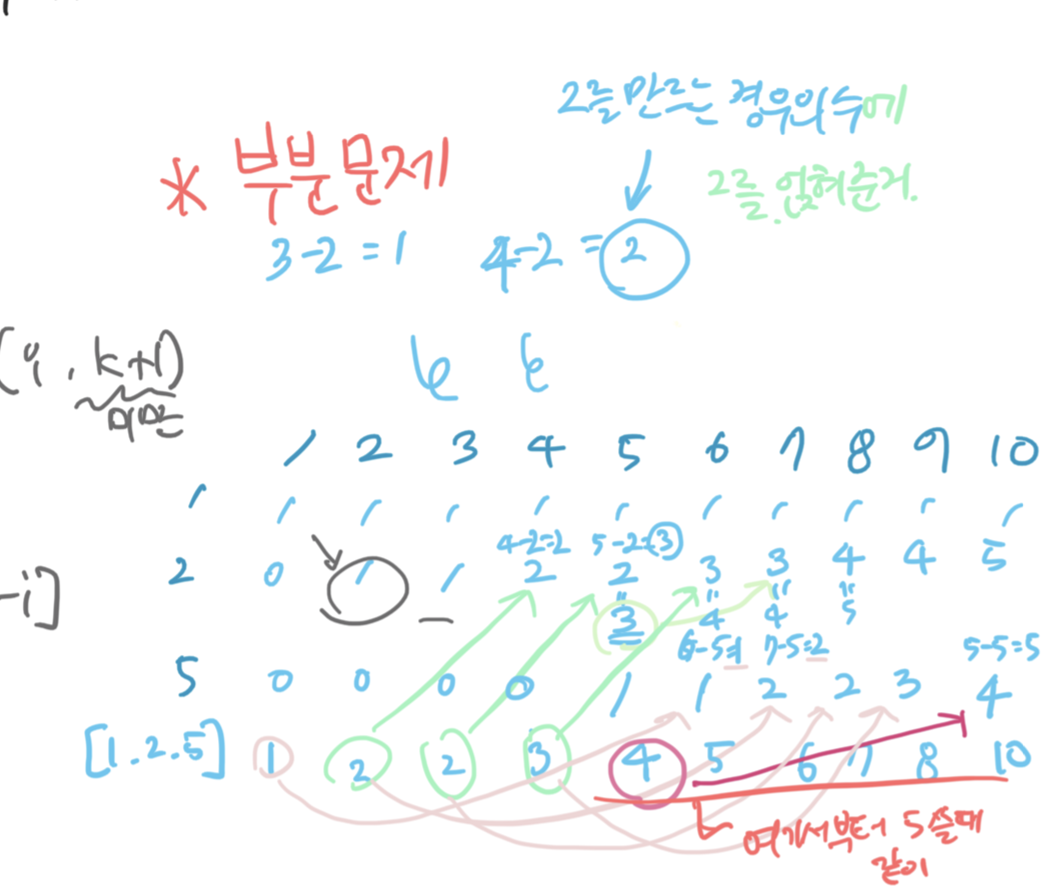 2를 만드는 경우의 수에
2를 얹혀준거.
* 부분문제
3-2=1 4-2=2
(i, k+1)
미만
1 2 3 4 5 6 7 8 9 10
1 1 1 1 1 1 1 1 1 1 1
4-2=2 5-2=3
2 0 1 1 2 2 3 3 4 4 5
-i]
" " " "
3 4 4 5
6-5=1 7-5=2 5-5=5
5 0 0 0 0 1 1 2 2 3 4
[1.2.5] 1 2 2 3 4 5 6 7 8 10
여기서부터 5 쓸때
같이